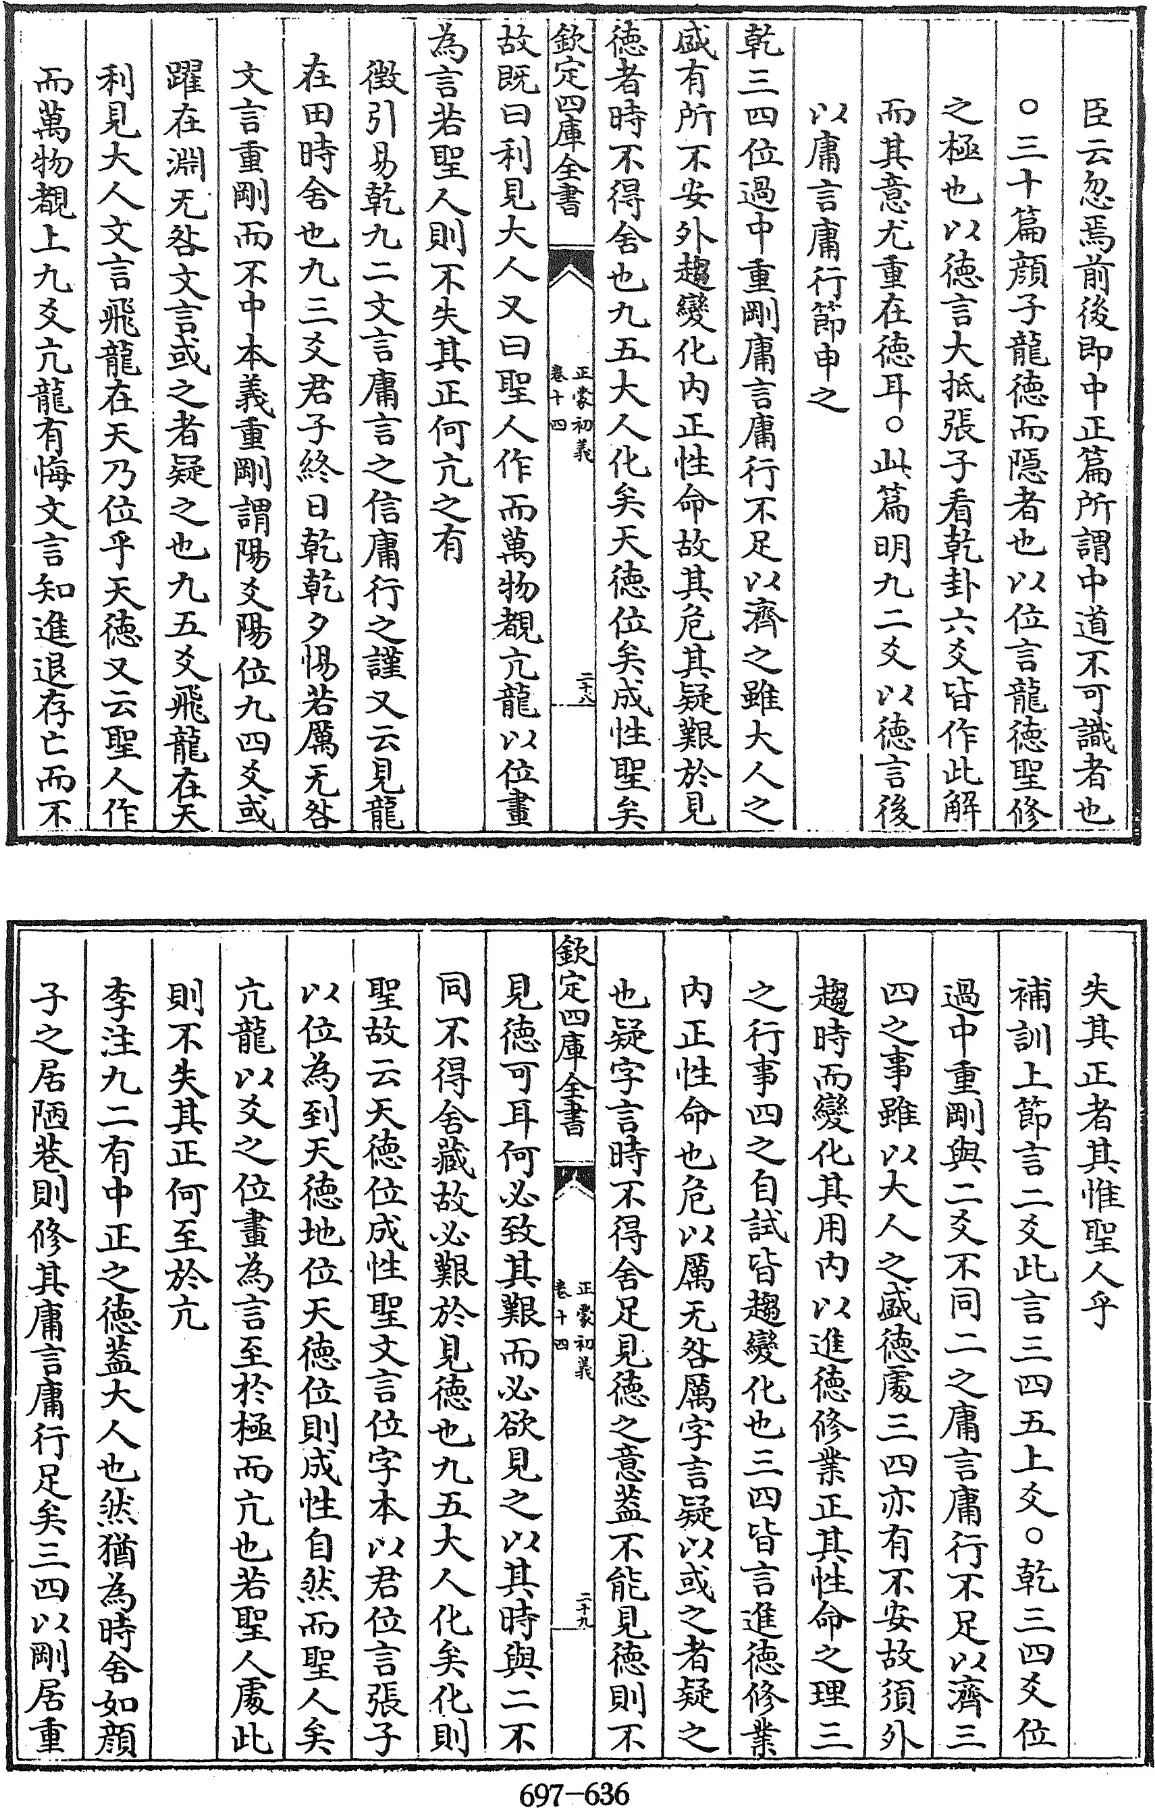 臣云忽焉前後即中正篇所謂中道不可識者也
○三十篇顔子龍徳而隱者也以位言龍徳聖修
之極也以徳言大抵張子看乾卦六爻皆作此解
而其意尤重在徳耳○此篇明九二爻以徳言後
以庸言庸行節申之
乾三四位過中重剛庸言庸行不足以濟之雖大人之
盛有所不安外趨變化内正性命故其危其疑艱於見
徳者時不得舍也九五大人化矣天徳位矣成性聖矣
欽定四庫全書
正蒙初義
卷十四
二十八
故既曰利見大人又曰聖人作而萬物覩亢龍以位畫
為言若聖人則不失其正何亢之有
徴引易乾九二文言庸言之信庸行之謹又云見龍
在田時舍也九三爻君子終日乾乾夕惕若厲无咎
文言重剛而不中本義重剛謂陽爻陽位九四爻或
躍在淵无咎文言或之者疑之也九五爻飛龍在天
利見大人文言飛龍在天乃位乎天徳又云聖人作
而萬物覩上九爻亢龍有悔文言知進退存亡而不
失其正者其惟聖人乎
補訓上節言二爻此言三四五上爻○乾三四爻位
過中重剛與二爻不同二之庸言庸行不足以濟三
四之事雖以大人之盛徳處三四亦有不安故須外
趨時而變化其用内以進徳修業正其性命之理三
之行事四之自試皆趨變化也三四皆言進徳修業
内正性命也危以厲无咎厲字言疑以或之者疑之
也疑字言時不得舍足見徳之意葢不能見徳則不
欽定四庫全書
正蒙初義
卷十四
二十九
見徳可耳何必致其艱而必欲見之以其時與二不
同不得舍藏故必艱於見徳也九五大人化矣化則
聖故云天徳位成性聖文言位字本以君位言張子
以位為到天徳地位天徳位則成性自然而聖人矣
亢龍以爻之位畫為言至於極而亢也若聖人處此
則不失其正何至於亢
李注九二有中正之徳葢大人也然猶為時舍如顔
子之居陋巷則修其庸言庸行足矣三四以剛居重
697-636